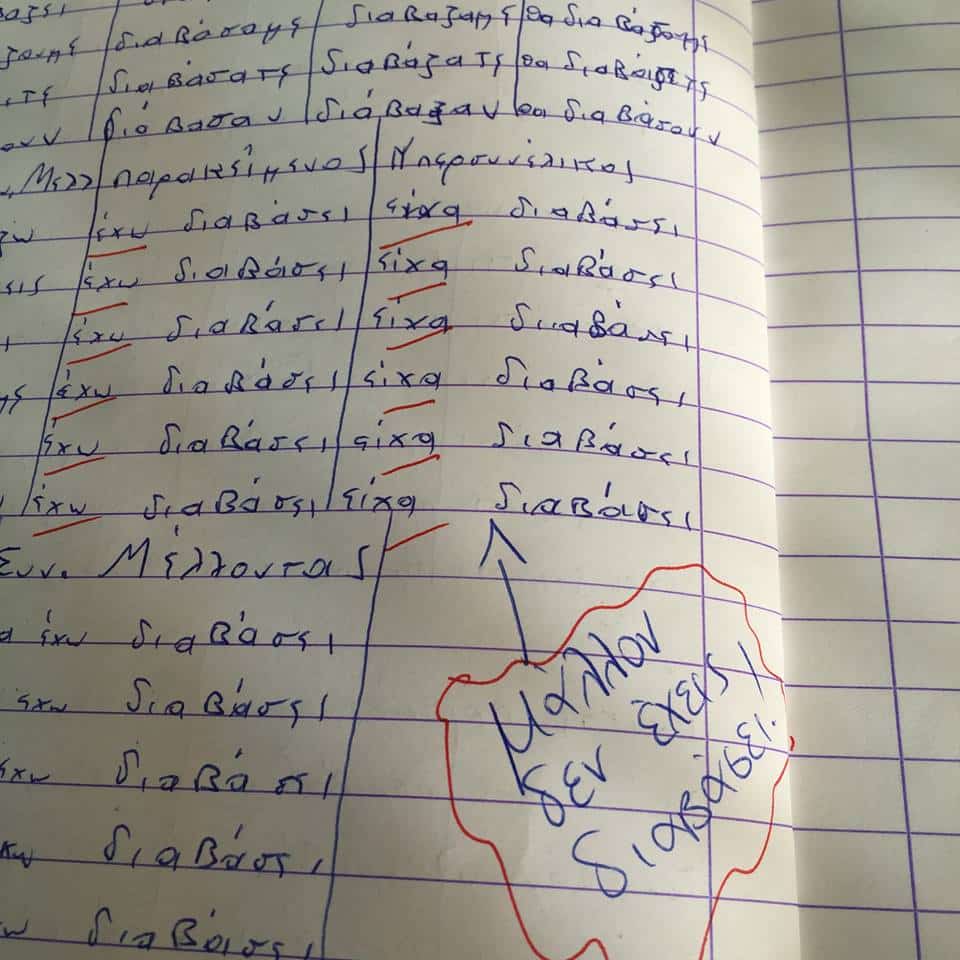 διαβάσαμε διαβάζαμε θα διαβάζουμε
διαβάσατε διαβάζατε θα διαβάζετε
διάβασαν διάβαζαν θα διαβάσουν
Μελλ Παρακείμενος Υπερσυντέλικος
έχω διαβάσει είχα διαβάσει
έχω διαβάσει είχα διαβάσει
έχω διαβάσει είχα διαβάσει
έχω διαβάσει είχα διαβάσει
έχω διαβάσει είχα διαβάσει
έχω διαβάσει είχα διαβάσει
Συν. Μέλλοντας
έχω διαβάσει
έχω διαβάσει
έχω διαβάσει
διαβάσει
διαβάσει
Μάλλον
δεν έχεις
διαβάσει!